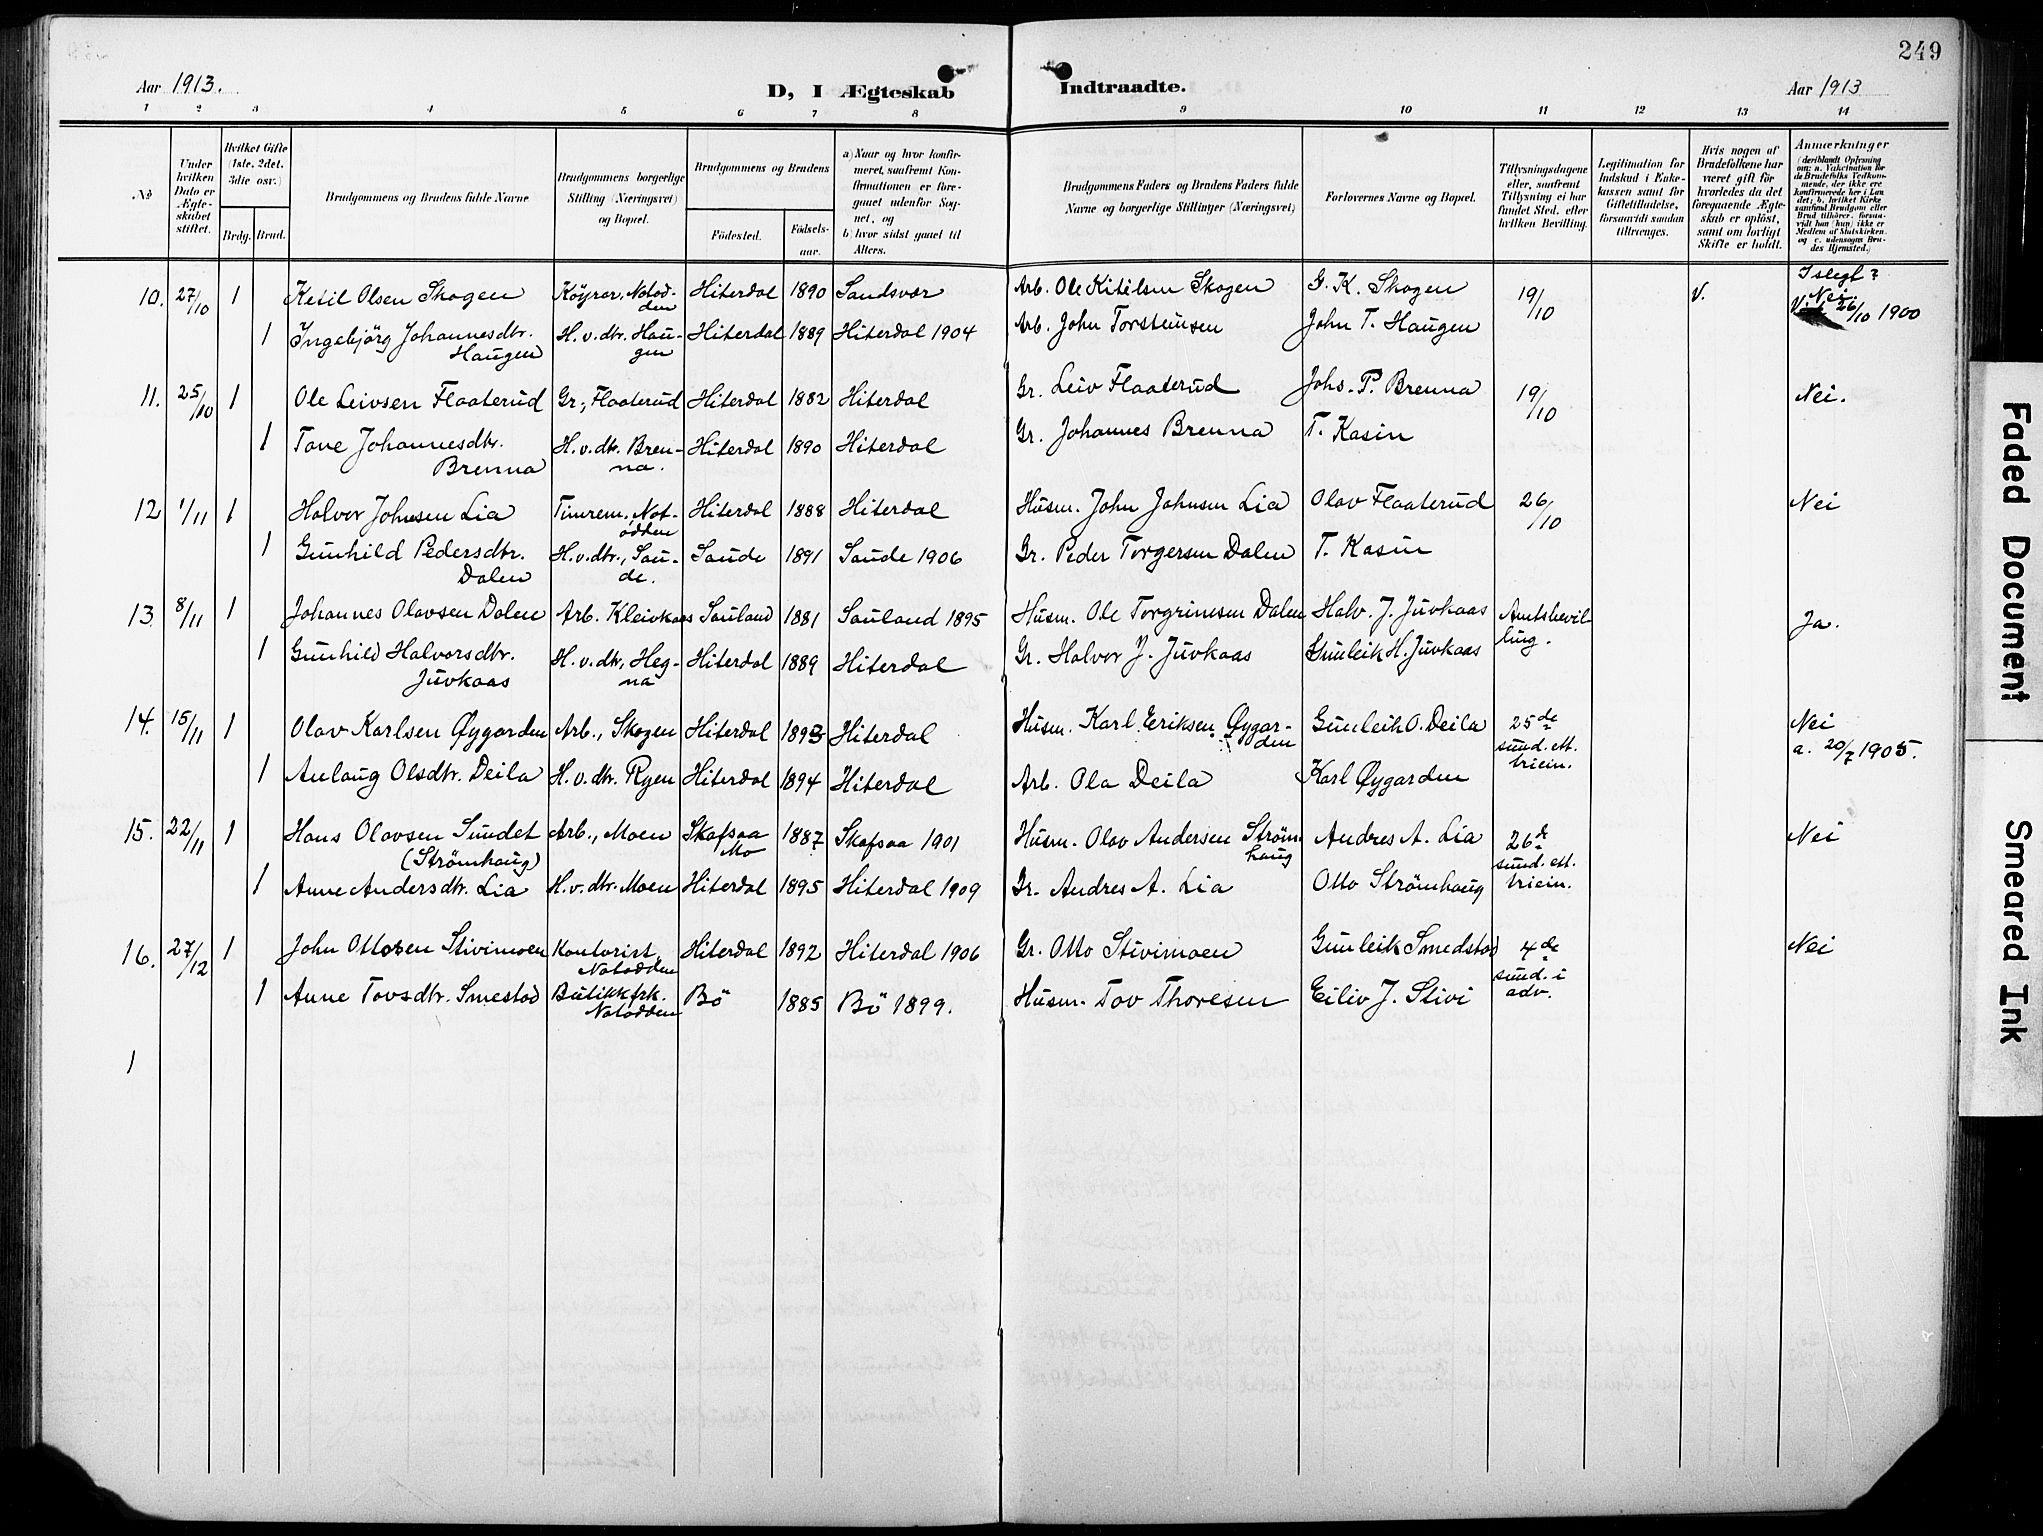 249
Aar 1913.
D, I Ægteskab Indtraadte.
Aar 1913
1 2 3 4 5 6 7 8 9 10 11 12 13 14
No
Under hvilken Dato er Ægteskabet stiftet.
Hvilket Gifte (1ste, 2det, 3die osv.)
Brdg. Brud.
Brudgommens og Brudens fulde Navne
Brudgommens borgerlige Stilling (Næringsvei) og Bopæl.
Brudgommens og Brudens
Fødested. Fødselsaar.
a) Naar og hvor konfirmeret, saafremt Konfirmationen er foregaaet udenfor Sognet, og
b) hvor sidst gaaet til Alters.
Brudgommens Faders og Brudens Faders fulde Navne og borgerlige Stillinger (Næringsvei)
Forlovernes Navne og Bopæl.
Tillysningsdagene eller, saafremt Tillysning ei har fundet Sted, efter hvilken Bevilling.
Legitimation for Indskud i Enkekassen samt for Giftetilladelse, forsaavidt saadan tiltrænges.
Hvis nogen af Brudefolkene har været gift før hvorledes da det foregaaende Ægteskab er opløst, samt om lovligt Skifte er holdt.
Anmærkninger
(deriblandt Oplysning om: a. Vakcination for de Brudefolks Vedkommende, der ikke ere konfirmerede her i Landet; b. hvilket Kirkesamfund Brudgom eller Brud tilhører, forsaavidt han (hun) ikke er Medlem af Statskirken, og c. udensogns Brudes Hjemsted.)
10. 27/10 1 Ketil Olsen Skogen Köyrar, Notodden Hiterdal 1890 Sandsvær Arb. Ole Kitilsen Skogen G. K. Skogen 19/10 V. I slegt? Nei
1 Ingebjörg Johannesdtr. Haugen H. v. dtr. Haugen Hiterdal 1889 Hiterdal 1904 Arb. John Torsteinsen John T. Haugen 26/10 1900
11. 25/10 1 Ole Leivsen Flaaterud Gr., Flaaterud Hiterdal 1882 Hiterdal Gr. Leiv Flaaterud Johs. P. Brenna 19/10 Nei.
1 Tone Johannesdtr. Brenna H. v. dtr. Brenna. Hiterdal 1890 Hiterdal Gr. Johannes Brenna T. Kasin
12 1/11 1 Halvor Johnsen Lia Timrem., Notodden Hiterdal 1888 Hiterdal Husm. John Johnsen Lia Olav Flaaterud 26/10 Nei
1 Gunhild Pedersdtr. Dalen H. v. dtr., Saude. Saude 1891 Saude 1906 Gr. Peder Torgersen Dalen T. Kasin
13. 8/11 1 Johannes Olavsen Dalen Arb. Kleivkaas Sauland 1881 Sauland 1895 Husm. Ole Torgrimsen Dalen Halv. J. Juvkaas Amtsbevilling. Ja.
1 Gunhild Halvorsdtr. Juvkaas H. v. dtr, Hegna Hiterdal 1889 Hiterdal Gr. Halvor J. Juvkaas Gunleik H. Juvkaas
14. 15/11 1 Olav Karlsen Øygarden Arb., Skogen Hiterdal 1893 Hiterdal Husm. Karl Eriksen Øygarden Gunleik O. Deila 25de sund. ett. triein. Nei
1 Anlaug Olsdtr. Deila H. v. dtr. Ryen Hiterdal 1894 Hiterdal Arb. Ola Deila Karl Øygarden a. 20/7 1905.
15. 22/11 1 Hans Olavsen Sundet (Strömhaug) Arb., Moen Skafsaa Mo 1887 Skafsaa 1901 Husm. Olav Andersen Strömhaug Andres A. Lia 26de sund. ett. triein. Nei
1 Anne Andersdtr. Lia H. v. dtr. Moen Hiterdal 1895 Hiterdal 1909 Gr. Andres A. Lia Otto Strömhaug
16. 27/12 1 John Ottosen Stivimoen Kontorist, Notodden Hiterdal 1892 Hiterdal 1906 Gr. Otto Stivimoen Gunleik Smedstad 4de sund. i adv. Nei
1 Anne Tovsdtr. Smestad Butikkfrk. Notodden Bö 1885 Bö 1899. Husm. Tov Thoresen Eiliv J. Stivi
1
Faded Document
Smeared Ink